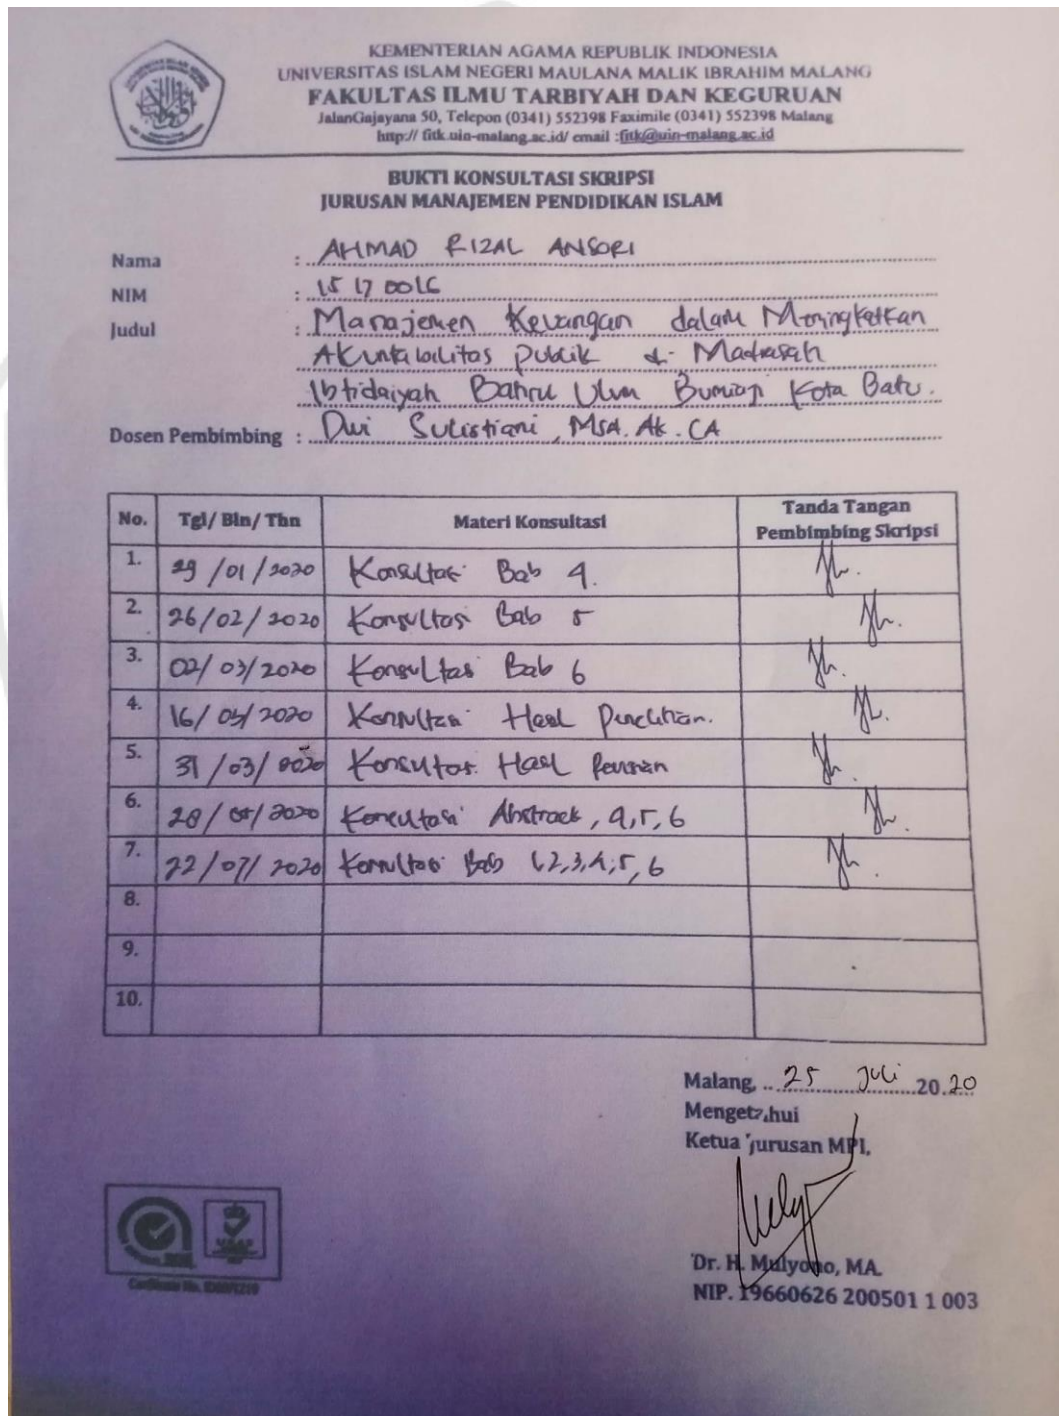 KEMENTERIAN AGAMA REPUBLIK INDONESIA
UNIVERSITAS ISLAM NEGERI MAULANA MALIK IBRAHIM MALANG
FAKULTAS ILMU TARBIYAH DAN KEGURUAN
JalanGajayana 50, Telepon (0341) 552398 Faximile (0341) 552398 Malang
http:// fitk.uin-malang.ac.id/ email :fitk@uin-malang.ac.id
BUKTI KONSULTASI SKRIPSI
JURUSAN MANAJEMEN PENDIDIKAN ISLAM
Nama : AHMAD RIZAL ANSORI
NIM : 15 17 0016
Judul : Manajemen Keuangan dalam Meningkatkan
Akuntabilitas Publik di Madrasah
Ibtidaiyah Bahrul Ulum Bumiaji Kota Batu.
Dosen Pembimbing : Dwi Sulistiani, MSA. Ak. CA
No. Tgl/ Bln/ Thn Materi Konsultasi Tanda Tangan Pembimbing Skripsi
1. 29/01/2020 Konsultasi Bab 4.
2. 26/02/2020 Konsultasi Bab 5
3. 02/03/2020 Konsultasi Bab 6
4. 16/03/2020 Konsultasi Hasil Penelitian.
5. 31/03/2020 Konsultasi Hasil
6. Konsultasi Abstrack, 4,5,6
7. 22/07/2020 Konsultasi Bab 1,2,3,4,5,6
8.
9.
10.
Malang, 25 Juli 2020
Mengetahui
Ketua Jurusan MPI,
Dr. H. Mulyono, MA.
NIP. 19660626 200501 1 003